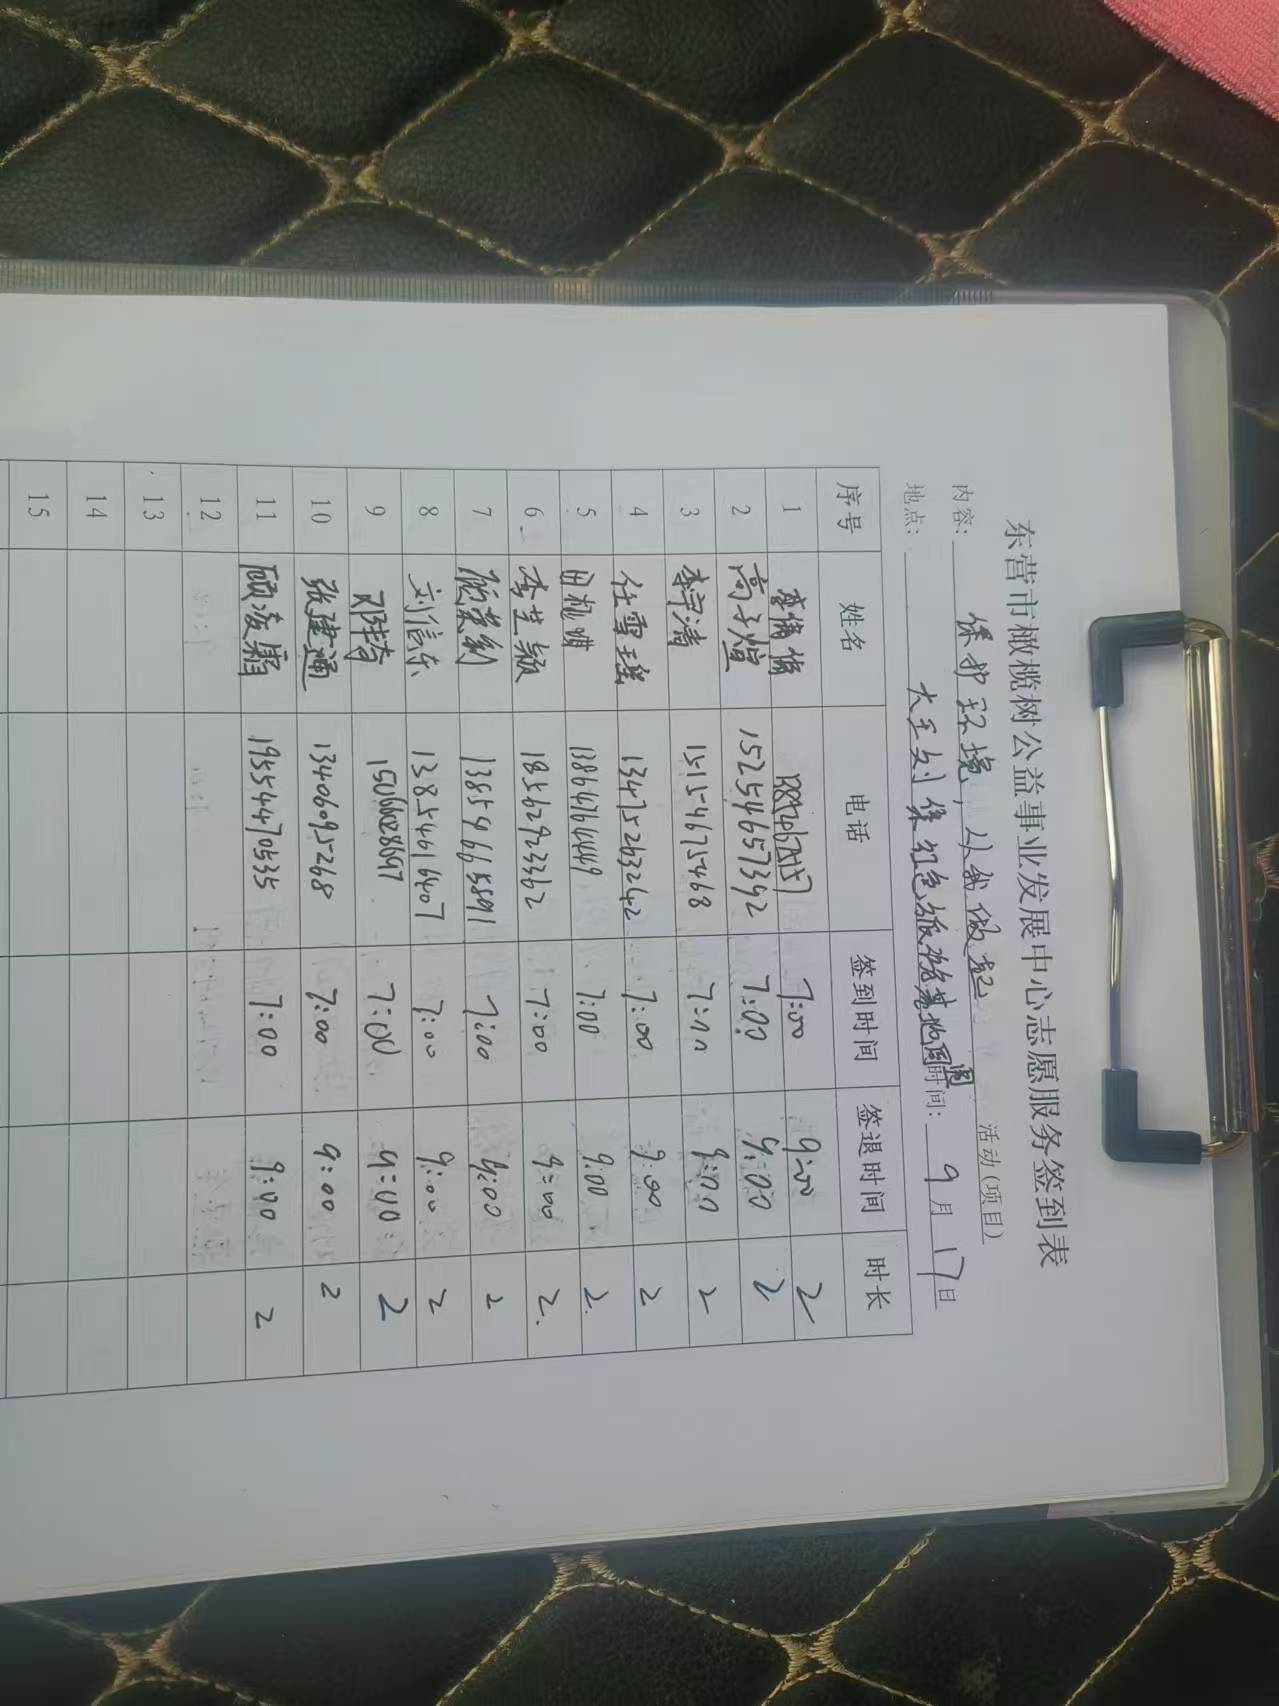 东营市橄榄树公益事业发展中心志愿服务签到表
内容: 保护环境,从我做起 活动(项目)
地点: 大王刘集红色旅游基地周围 时间: 9月17日
序号 姓名 电话 签到时间 签退时间 时长
1 李倩倩 7:00 9:00 2
2 高子煊 15254657392 7:00 9:00 2
3 李宇清 15154675468 7:00 9:00 2
4 任雪瑶 13475263242 7:00 9:00 2
5 7:00 9:00 2
6 李芝颖 18562923362 7:00 9:00 2
7 13854665891 7:00 9:00 2
8 刘信东 13854616407 7:00 9:00 2
9 邓琦 15066028697 7:00 9:00 2
10 张建通 13406095268 7:00 9:00 2
11 顾凌霜 19554470535 7:00 9:00 2
12
13
14
15